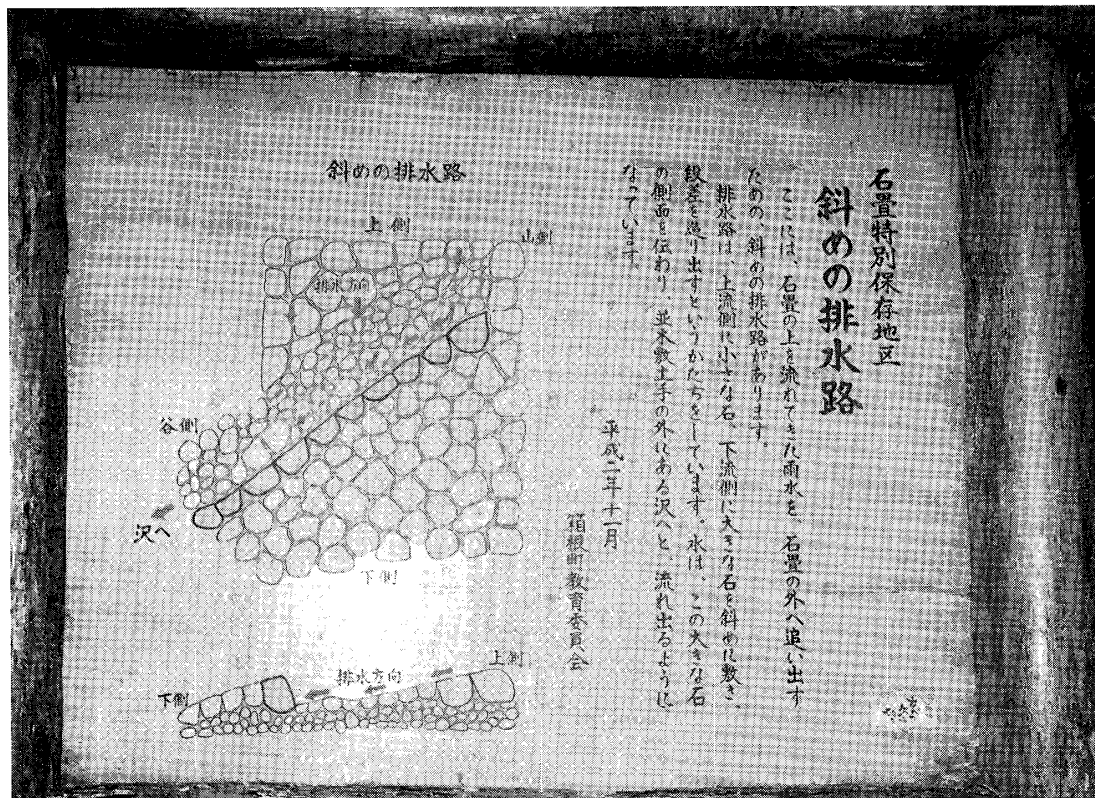 石畳特別保存地区
斜めの排水路
ここには、石畳の上を流れてきた雨水を、石畳の外へ追い出す
ための、斜めの排水路があります。
排水路は、上流側に小さな石、下流側に大きな石を斜めに敷き、
段差を造り出すというかたちをしています。水は、この大きな石
の側面を伝わり、並木敷土手の外にある沢へと、流れ出るように
なっています。
平成二年十一月
箱根町教育委員会
斜めの排水路
上側
山側
排水方向
谷側
沢へ
下側
上側
排水方向
下側